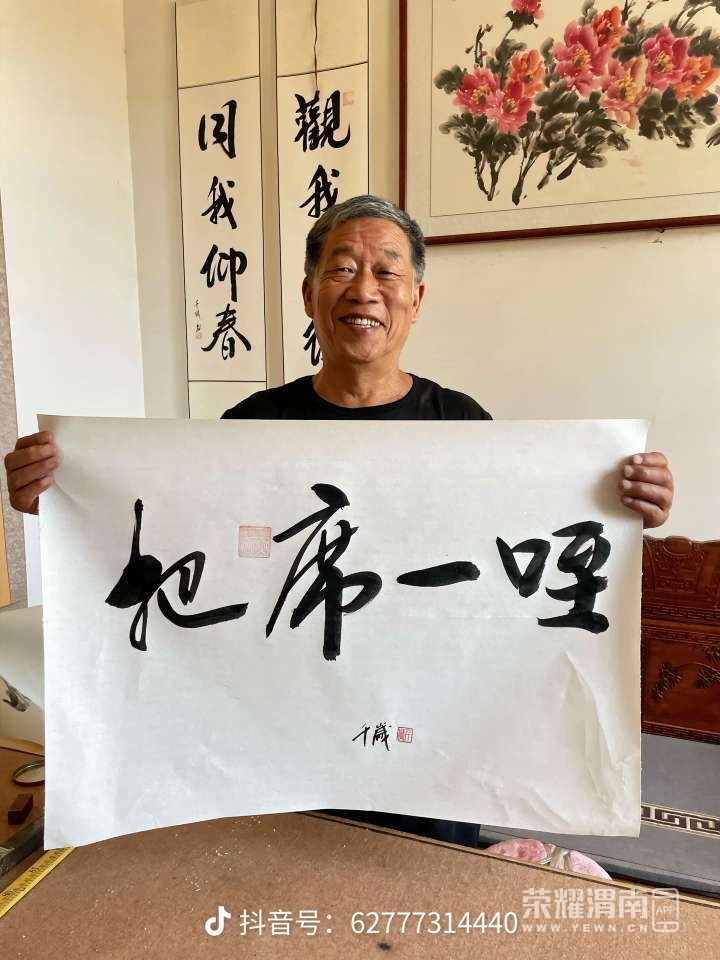 觀我
同我仰春
把席一咥
千歲
抖音号：62777314440
荣耀渭南
APP
WWW.YEWN.CN